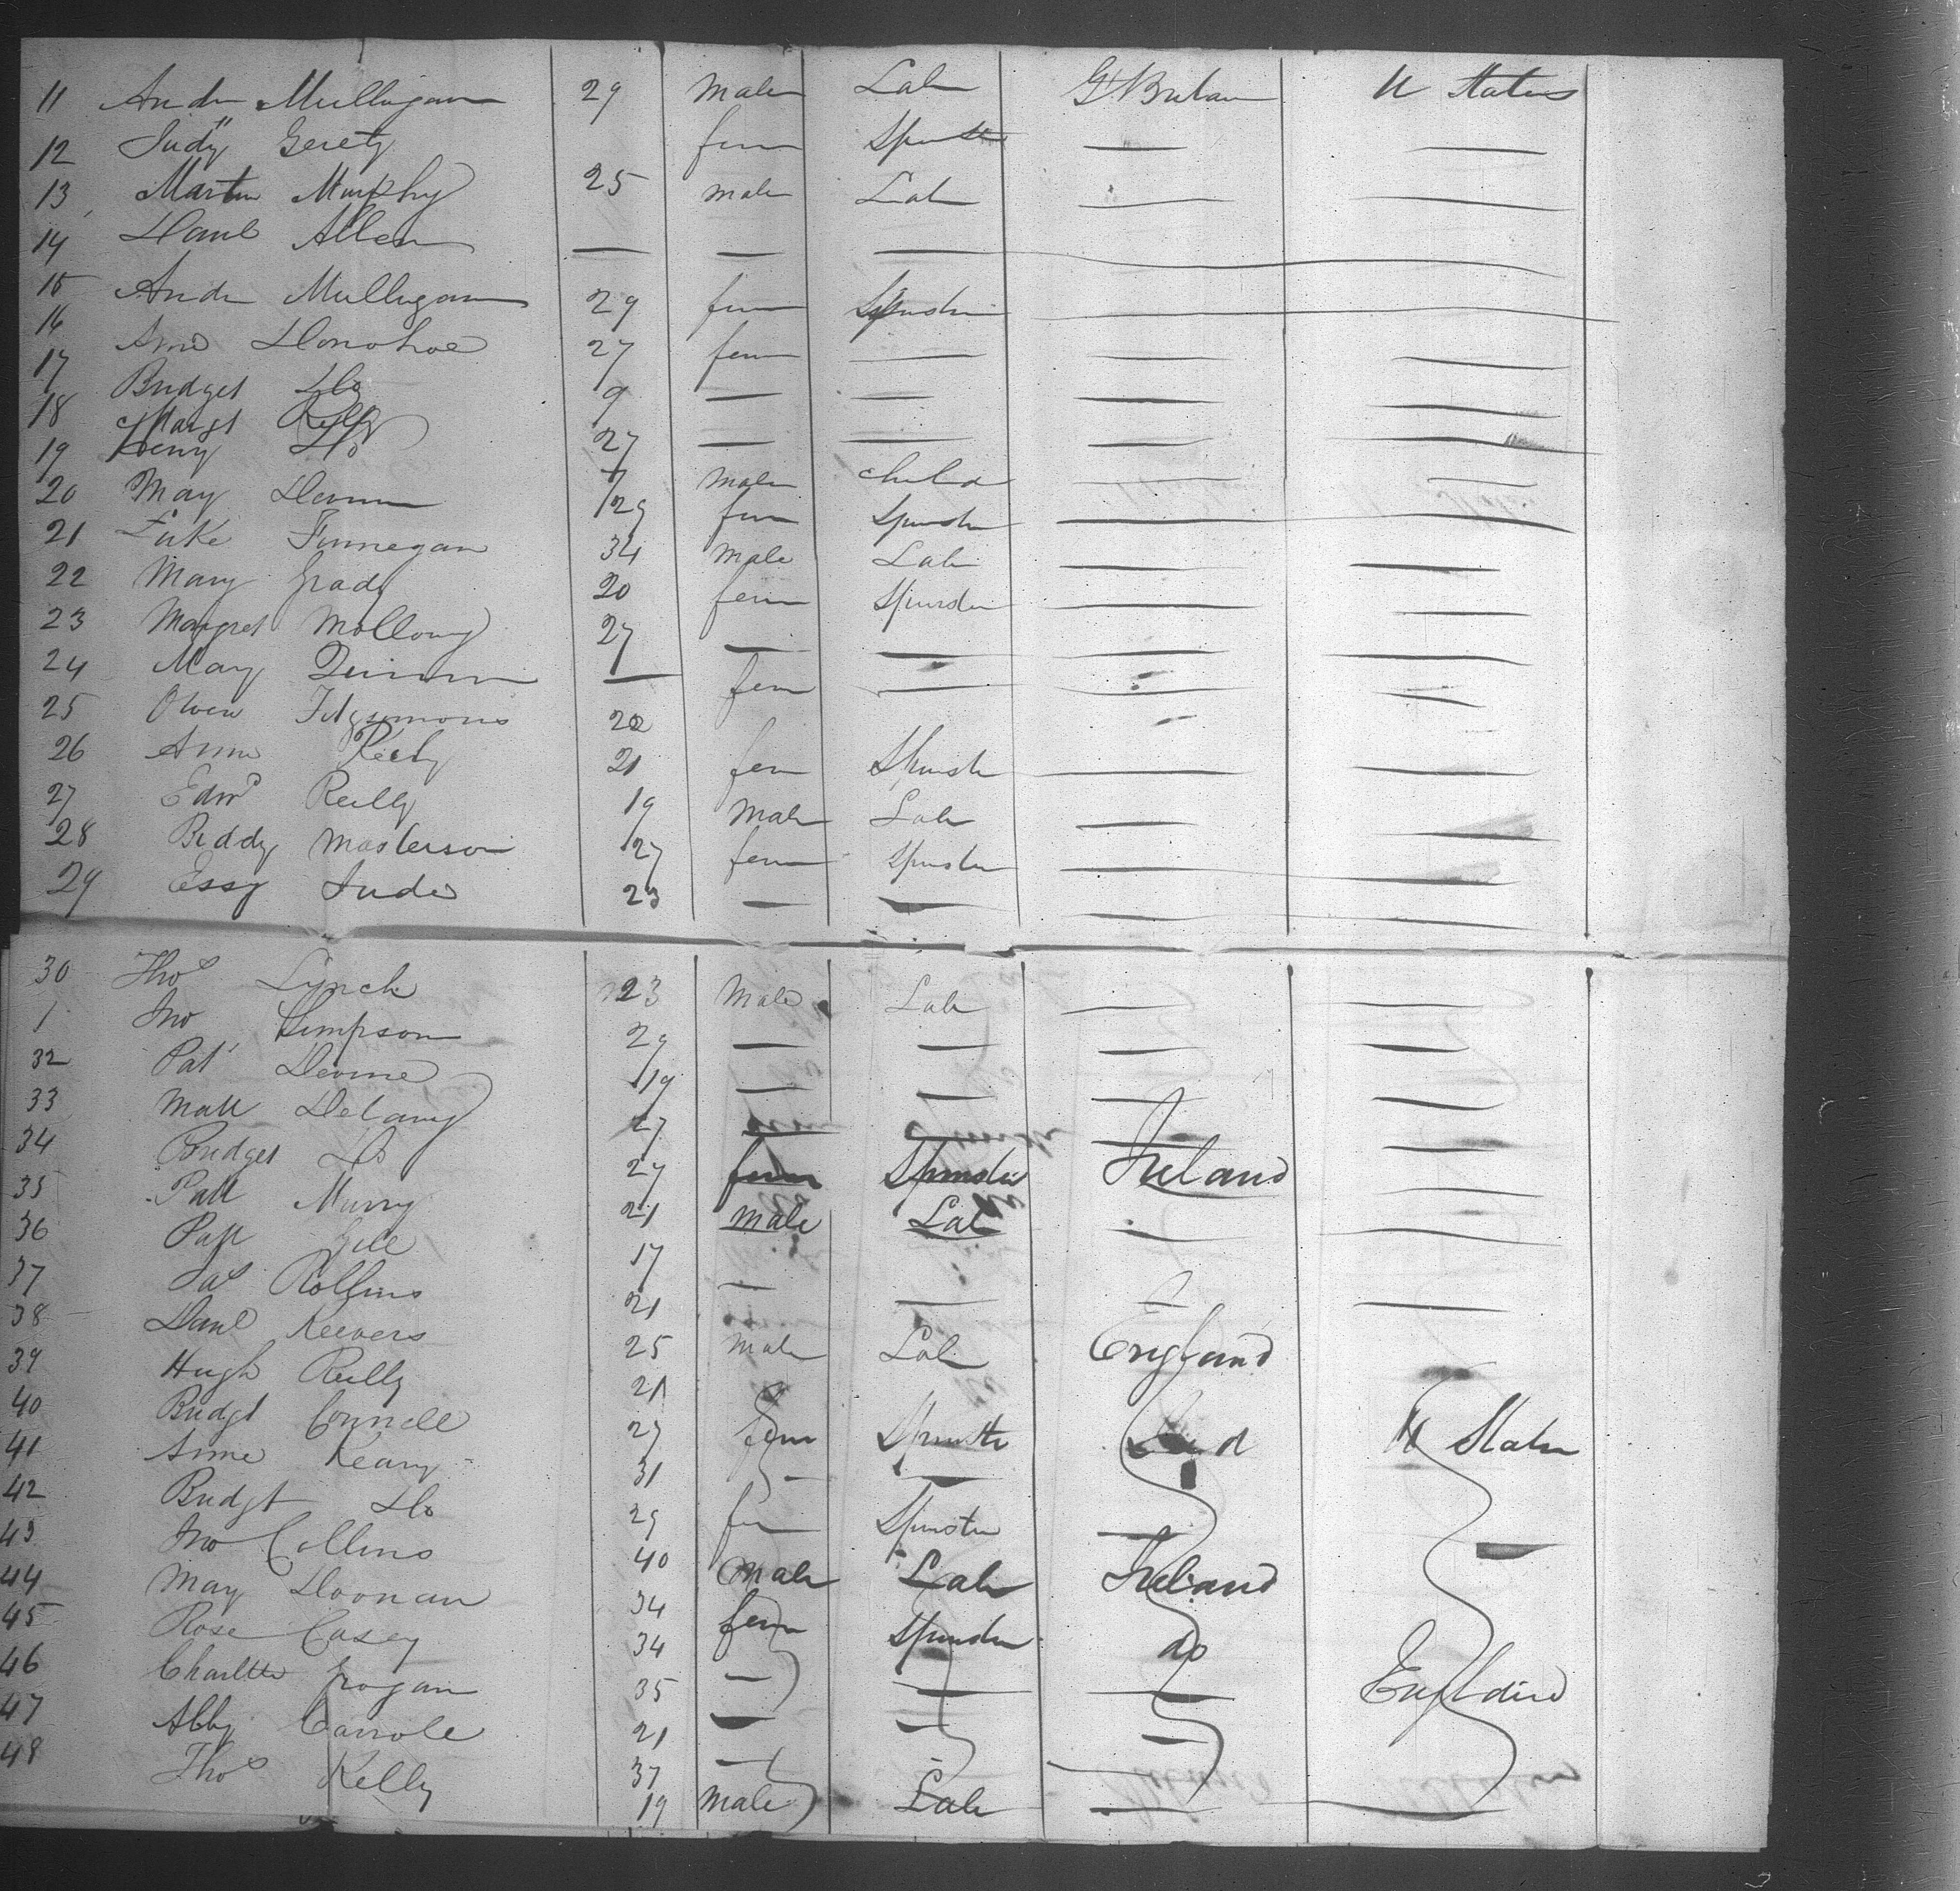 11 Andw Mulligan 29 Male Lab Gt Britain U States
12 Judy Gerety fem Spinstr — —
13 Martin Murphy 25 male Lab — —
14 Danl Allen — — — — —
15 Andw Mulligan 29 fem Spinster — —
16 Ann Donohoe 27 fem — — —
17 Bridget Do 9 — — — —
18 Margt Reilly 27 — — — —
19 Do 7 male child — —
20 May 29 fem Spinster — —
21 Luke Finnegan 34 male Lab — —
22 Mary Grady 20 fem Spinster — —
23 Margret Mollowy 27 — — — —
24 Mary Quinn — fem — — —
25 Owen Fitzsimons 22
26 Anne Reily 21 fem Spinstr — —
27 Edwd Reilly 19 Male Lab — —
28 Biddy Masterson 27 fem Spinster — —
29 Essy Jude 23 — — — —
30 Thos Lynch 23 Male Lab — —
1 Jno Simpson 29 — — — —
32 Pat Devine 19 — — — —
33 Matt Delany 27 — — — —
34 Bridget Do 27 fem Spinster Ireland —
35 Patt Murry 21 male Lab — —
36 Patt Gill 17
37 Pat Rollins 21 — — — —
38 Danl Keevers 25 male Lab England
39 Hugh Reilly 21
40 Bridgt Connell 27 fem Spinstr U States
41 Anne Keary 31 — —
42 Bridgt Do 29 fem Spinster — —
43 Jno Collins 40 Male Lab Ireland
44 May Doonan 34 fem Spinster do
45 Rose Casey 34 — — — England
46 Charltte Grogan 35 — — —
47 Abby Carrole 21 — —
48 Thos Kelly 37
19 male Lab — —